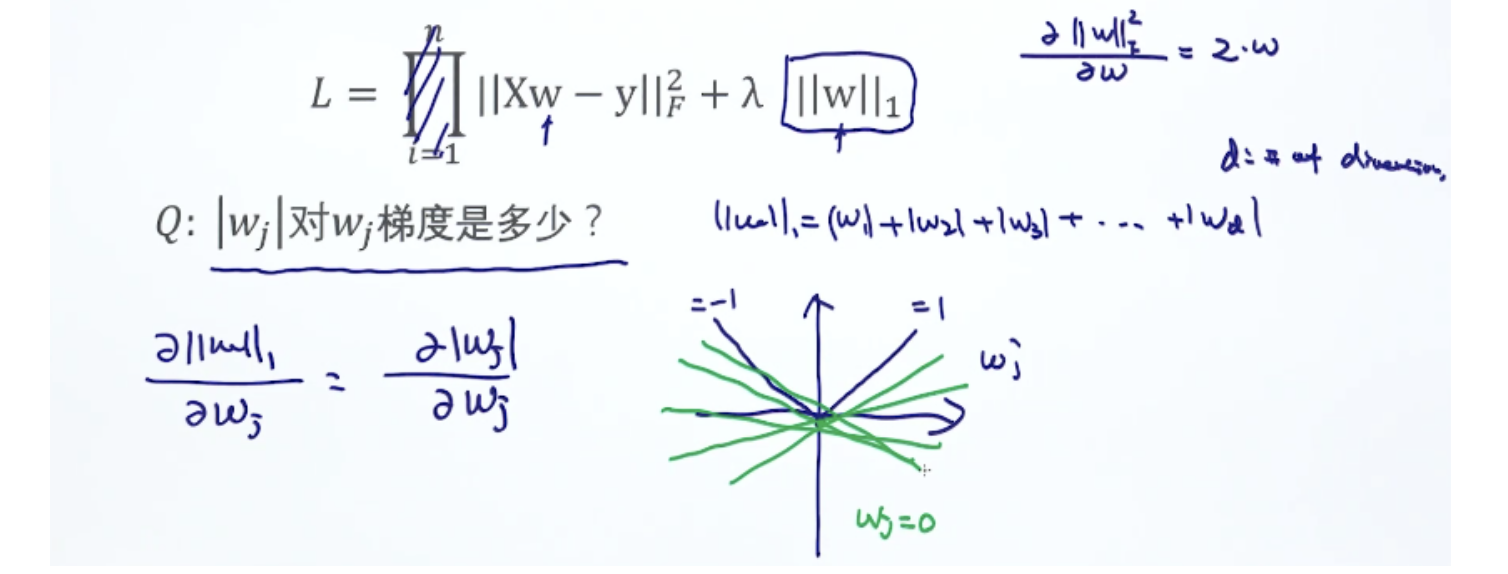 L = ∏_{i=1}^{n} ||Xw − y||_F^2 + λ ||w||_1
∂||w||_F^2 / ∂w = 2·w
d: # of dimension
Q: |w_j|对w_j梯度是多少？
||w||_1 = |w_1| + |w_2| + |w_3| + · · · + |w_d|
∂||w||_1 / ∂w_j = ∂|w_j| / ∂w_j
=-1
=1
w_j
w_j=0